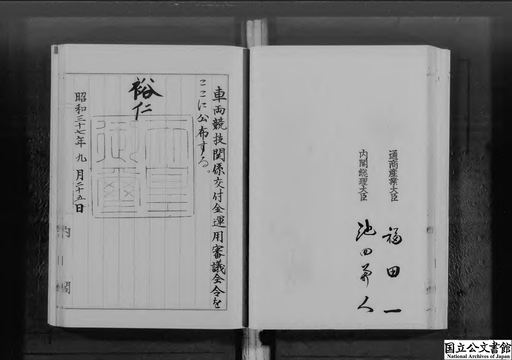 車両競技関係交付金運用審議会令を
ここに公布する。
裕仁
昭和三十七年九月二十五日
内閣
通商産業大臣
福田一
内閣総理大臣
池田勇人
国立公文書館
National Archives of Japan